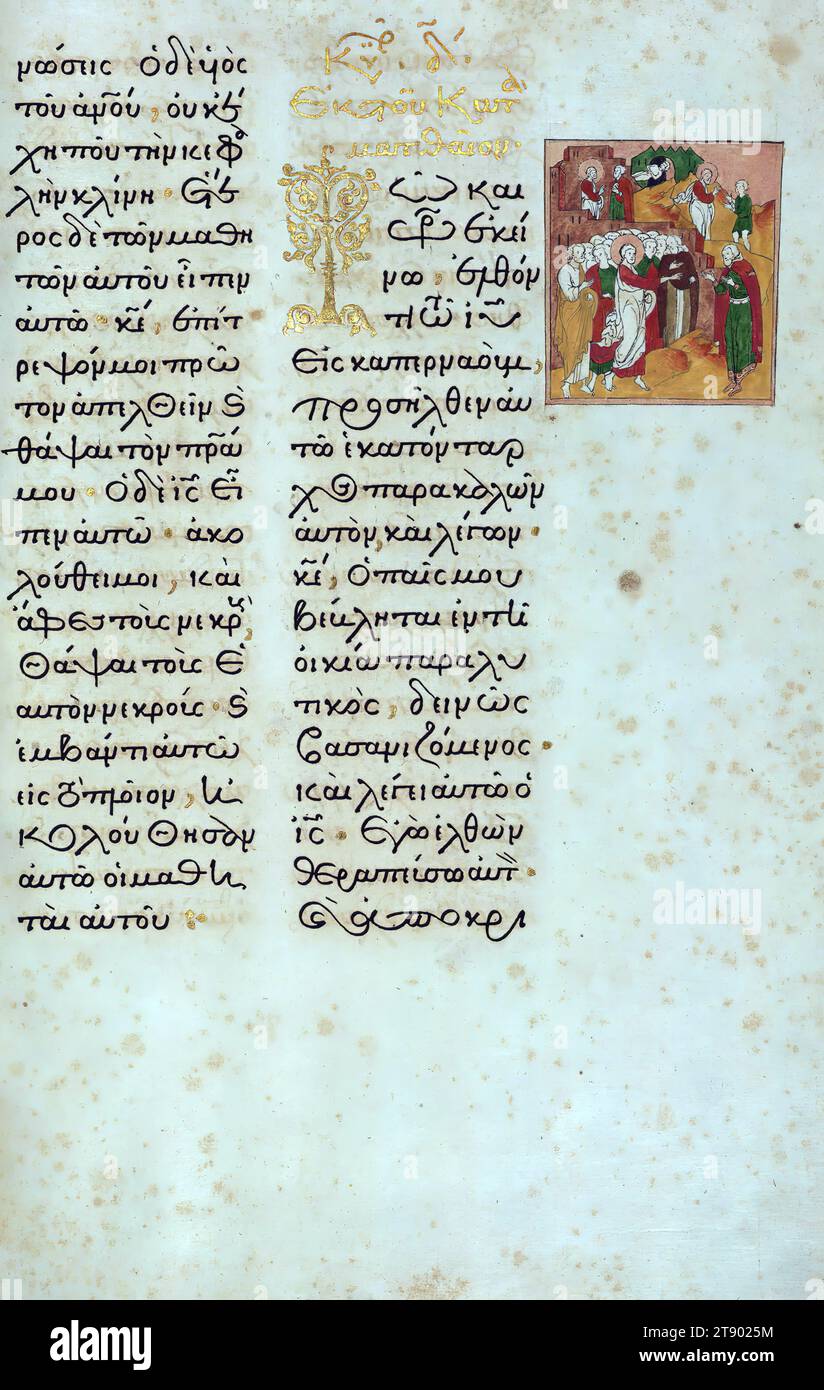 νώσεις ὁ δὲ υἱὸς
τοῦ ἀνου, οὐκ ἔ
χη ποῦ τὴν κεφα
λὴν κλίνη · ἕτε
ρος δὲ τῶν μαθη
τῶν αὐτοῦ εἶπεν
αὐτῶ · κε, ἐπίτ
ρεψόν μοι πρῶ
τον ἀπελθεῖν καὶ
θάψαι τὸν πρα
μου · ὁ δὲ ις εἶ
πεν αὐτῶ · ἀκο
λούθει μοι, καὶ
ἄφες τοὺς νεκροὺς
θάψαι τοὺς ἑ
αυτῶν νεκρούς · καὶ
ἐμβάντι αὐτῶ
εἰς τὸ πλοῖον, ἠ
κολούθησαν
αὐτῶ οἱ μαθη
ταὶ αὐτοῦ
Κυρ. δ.
Ἐκ τοῦ Κατὰ
ματθαῖον ·
Τῶ και
ρῶ ἐκεί
νω, ἐλθόν
τι τῶ ιυ
εἰς καπερναοὺμ,
προσῆλθεν αὐ
τῶ ἑκατόνταρ
χος παρακαλῶν
αὐτὸν, καὶ λέγων ·
κε, ὁ παῖς μου
βέβληται ἐν τῆ
οἰκία παραλυ
τικὸς, δεινῶς
βασανιζόμενος
καὶ λέγει αὐτῶ ὁ
ις · Ἐγὼ ἐλθὼν
θεραπεύσω αὐτ ·
Καὶ ἀποκρι
alamy
alamy
alamy
alamy
Image ID: 2T9025M
www.alamy.com